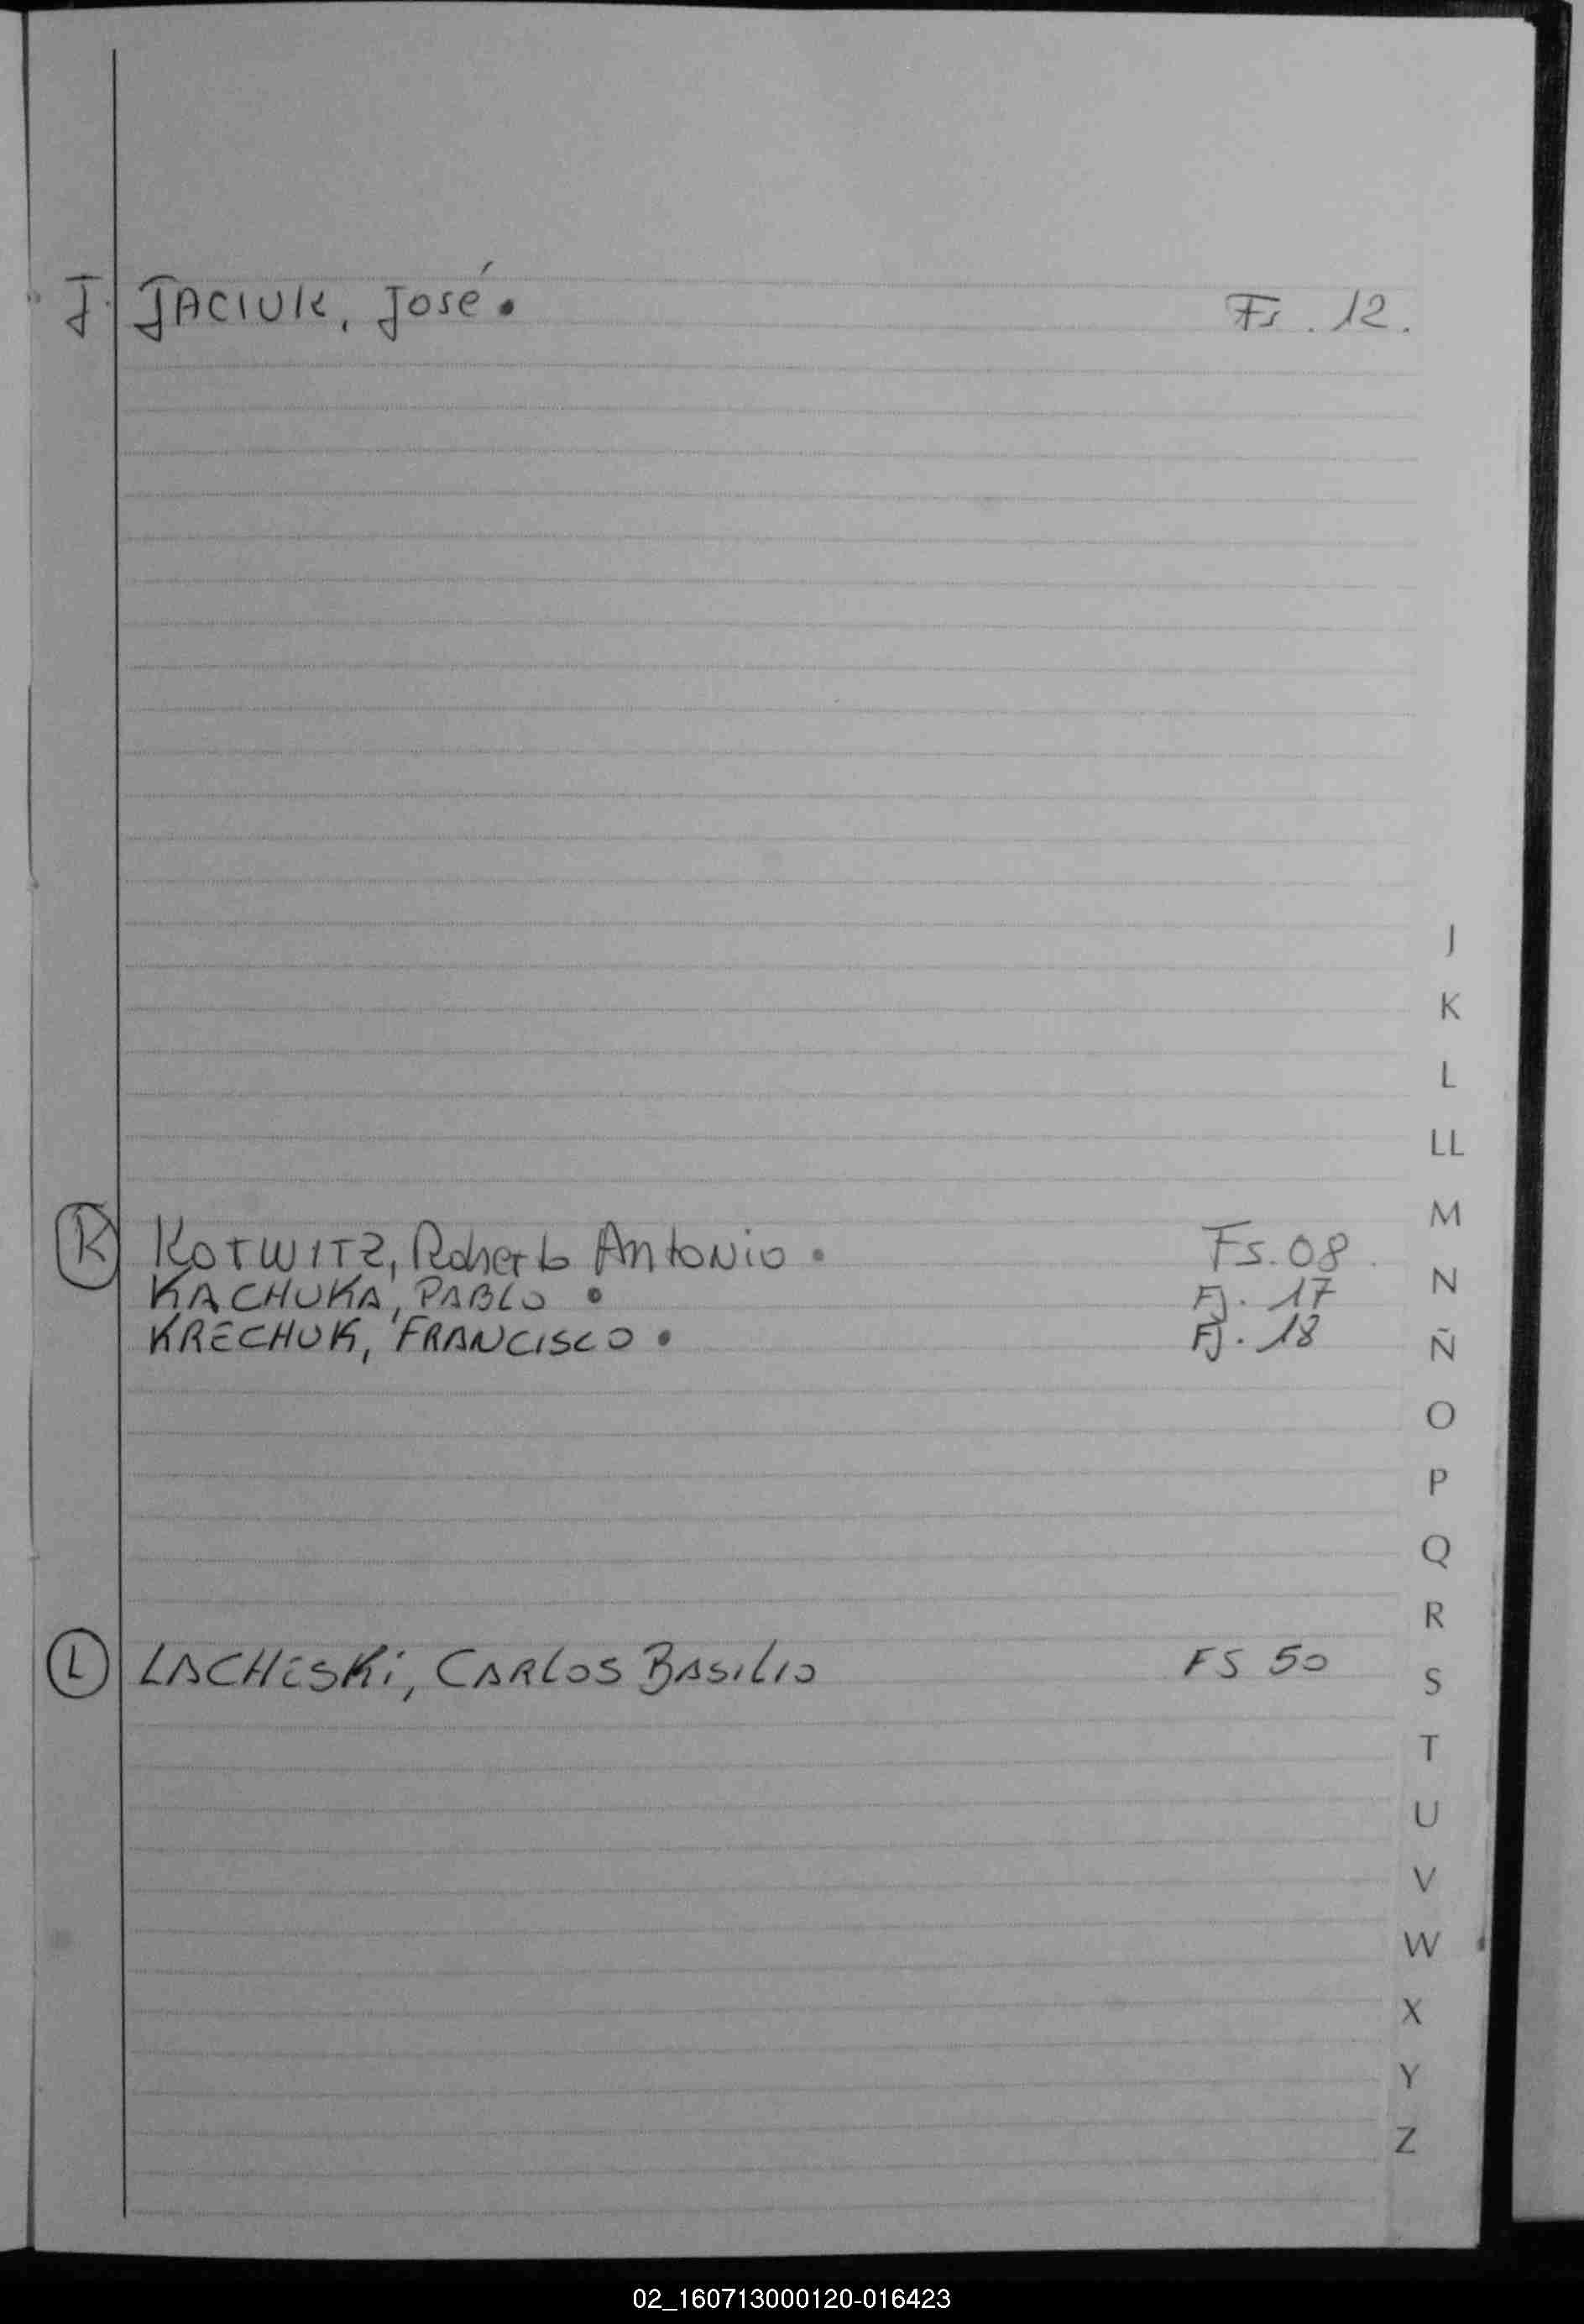 J. JACIUK, José. Fs. 12.
J
K
L
LL
M
(K) KOTWITZ, Roberto Antonio. Fs. 08.
N
KACHUKA, PABLO. Fj. 17
KRECHUK, FRANCISCO. Fj. 18
Ñ
O
P
Q
R
(L) LACHESKi, CARLOS BASILIO FS 50
S
T
U
V
W
X
Y
Z
02_160713000120-016423